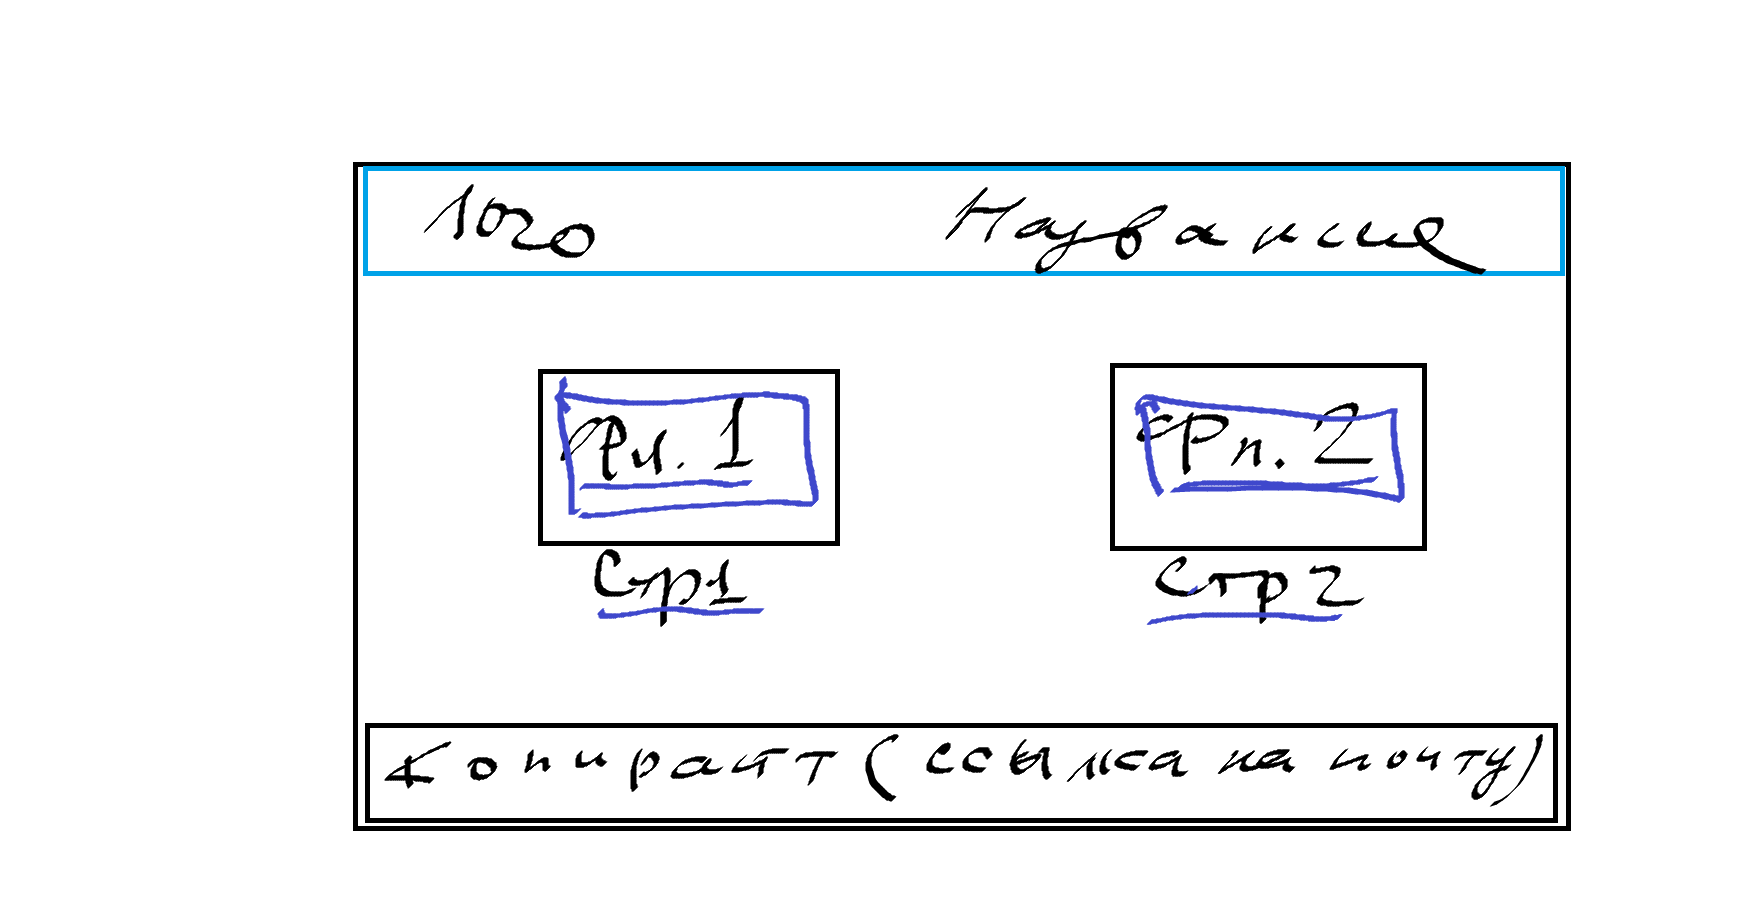 лого Название
Рп. 2
Стр1 Стр2
Копирайт (ссылка на почту)